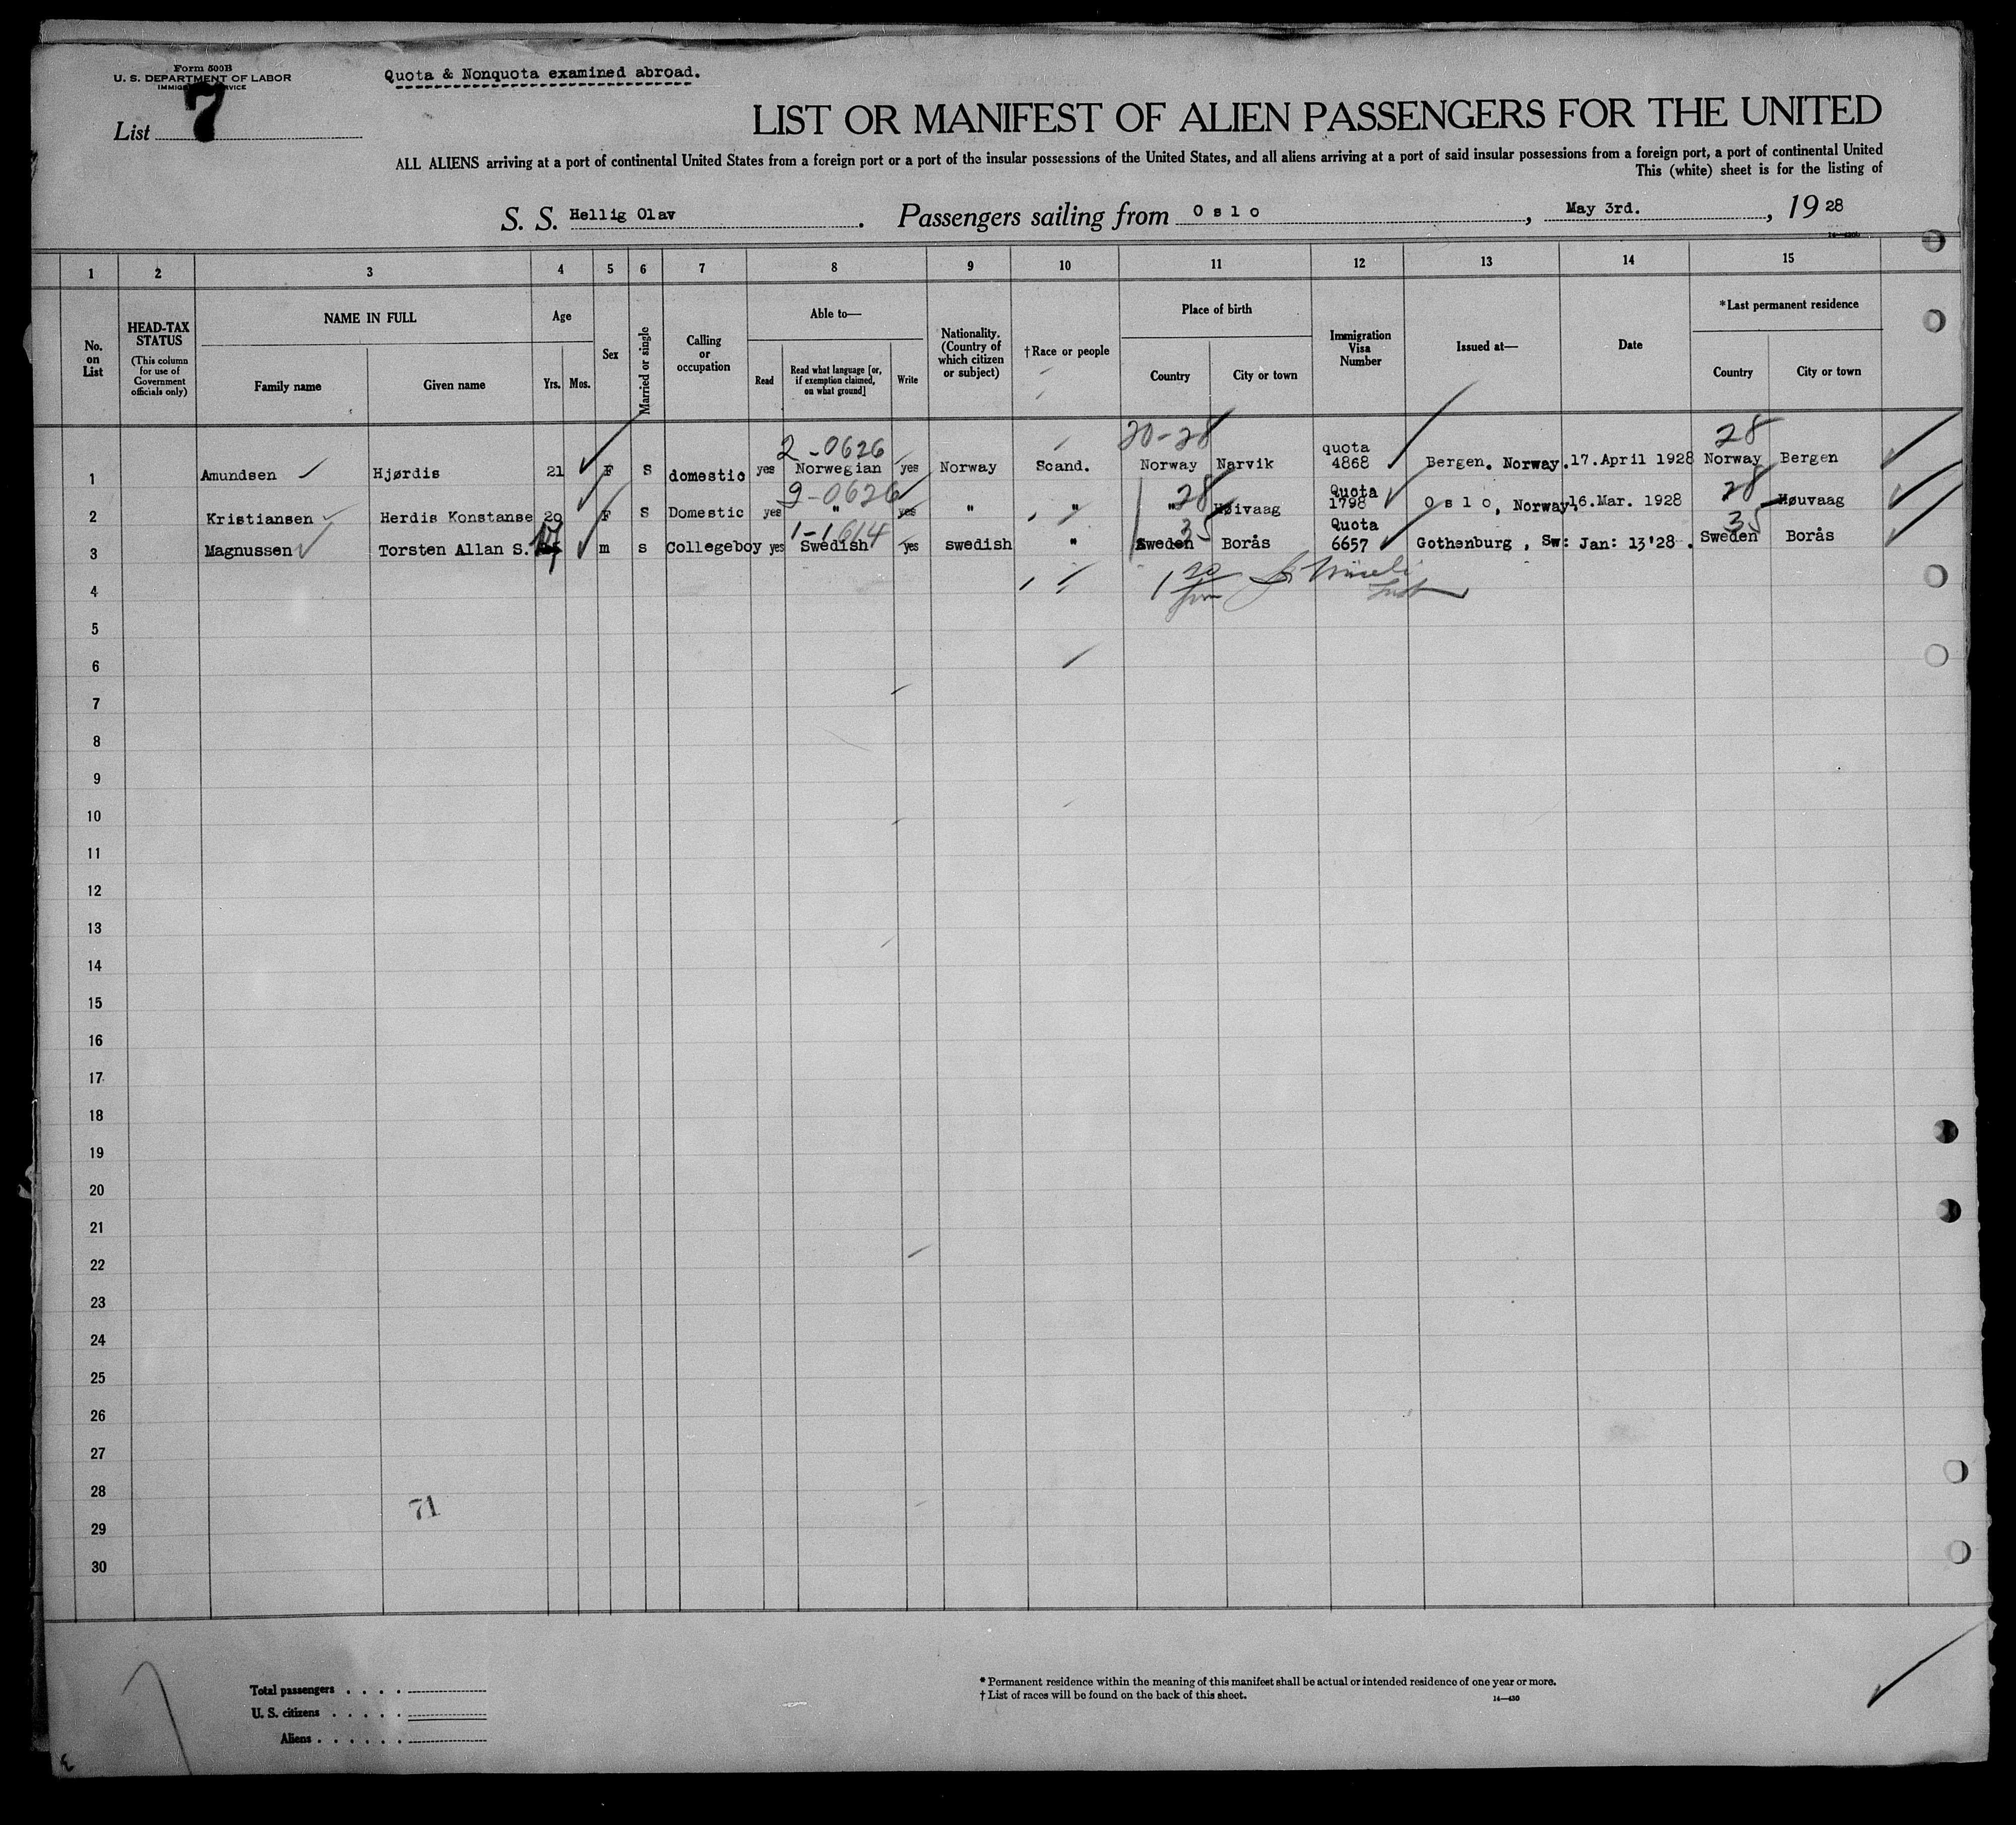 Form 500B
U. S. DEPARTMENT OF LABOR
Quota & Nonquota examined abroad.
List 7
LIST OR MANIFEST OF ALIEN PASSENGERS FOR THE UNITED
ALL ALIENS arriving at a port of continental United States from a foreign port or a port of the insular possessions of the United States, and all aliens arriving at a port of said insular possessions from a foreign port, a port of continental United
This (white) sheet is for the listing of
S. S. Hellig Olav. Passengers sailing from Oslo, May 3rd., 1928
1 2 3 4 5 6 7 8 9 10 11 12 13 14 15
No. on List
HEAD-TAX STATUS
(This column for use of Government officials only)
NAME IN FULL
Family name Given name
Age
Yrs. Mos.
Sex
Married or single
Calling or occupation
Able to—
Read
Read what language [or, if exemption claimed, on what ground]
Write
Nationality. (Country of which citizen or subject)
†Race or people
Place of birth
Country City or town
Immigration Visa Number
Issued at—
Date
*Last permanent residence
Country City or town
2-0626 20-28 28
1 Amundsen Hjørdis 21 F S domestic yes Norwegian yes Norway Scand. Norway Narvik quota 4868 Bergen. Norway. 17.April 1928 Norway Bergen
9-0626 28 28
2 Kristiansen Herdis Konstanse 20 F S Domestic yes " yes " " " Høivaag Quota 1798 Oslo, Norway. 16.Mar. 1928 Høuvaag
1-1614 35 35
3 Magnussen Torsten Allan S. m s Collegeboy yes Swedish yes swedish " Sweden Borås Quota 6657 Gothenburg, Sw: Jan: 13'28. Sweden Borås
4
5
6
7
8
9
10
11
12
13
14
15
16
17
18
19
20
21
22
23
24
25
26
27
28
71
29
30
Total passengers . . . .
U. S. citizens . . . . .
Aliens . . . . . .
* Permanent residence within the meaning of this manifest shall be actual or intended residence of one year or more.
† List of races will be found on the back of this sheet.
14—430